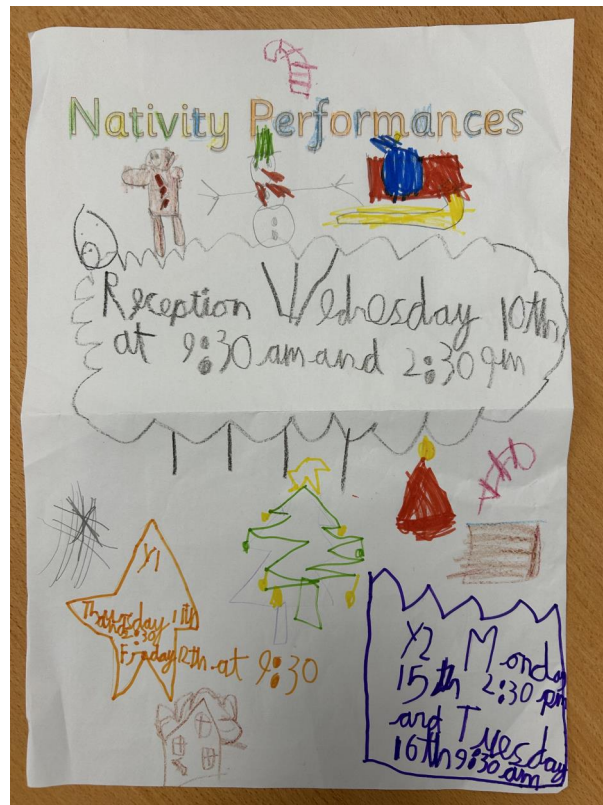 Nativity Performances
Reception Wednesday 10th
at 9:30 am and 2:30 pm
Y1
Thursday 11th
Friday 12th at 9:30
Y2 Monday
15th 2:30 pm
and Tuesday
16th 9:30 am